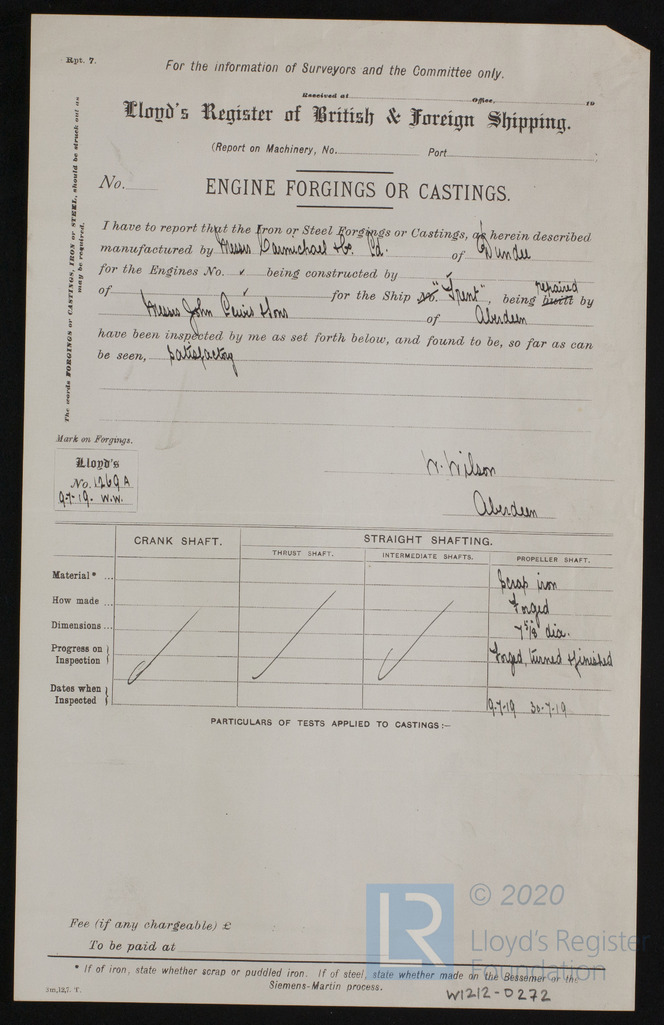 Rpt. 7.
For the information of Surveyors and the Committee only.
Received at Office, 19
Lloyd's Register of British & Foreign Shipping.
(Report on Machinery, No. Port ;
No. ENGINE FORGINGS OR CASTINGS.
I have to report that the Iron or Steel Forgings or Castings, as herein described
manufactured by Messrs Carmichael & Co. Ld. of Dundee
for the Engines No. ✓ being constructed by
of ✓ for the Ship No. "Trent", being built repaired by
Messrs John Lewis & Sons of Aberdeen
have been inspected by me as set forth below, and found to be, so far as can
be seen, satisfactory
The words FORGINGS or CASTINGS, IRON or STEEL, should be struck out as
may be required.
Mark on Forgings.
Lloyd's
No. 1269A
9-7-19. W.W.
W. Wilson
Aberdeen
CRANK SHAFT. STRAIGHT SHAFTING.
THRUST SHAFT. INTERMEDIATE SHAFTS. PROPELLER SHAFT.
Material* ... Scrap iron
How made ... Forged
Dimensions ... 7 5/8 dia.
Progress on Inspection } Forged, turned & finished
Dates when Inspected } 9-7-19 30-7-19
PARTICULARS OF TESTS APPLIED TO CASTINGS:—
Fee (if any chargeable) £
To be paid at
* If of iron, state whether scrap or puddled iron. If of steel, state whether made on the Bessemer or the
Siemens-Martin process.
5m,12,7. T.
W1212-0272
LR
© 2020
Lloyd's Register
Foundation